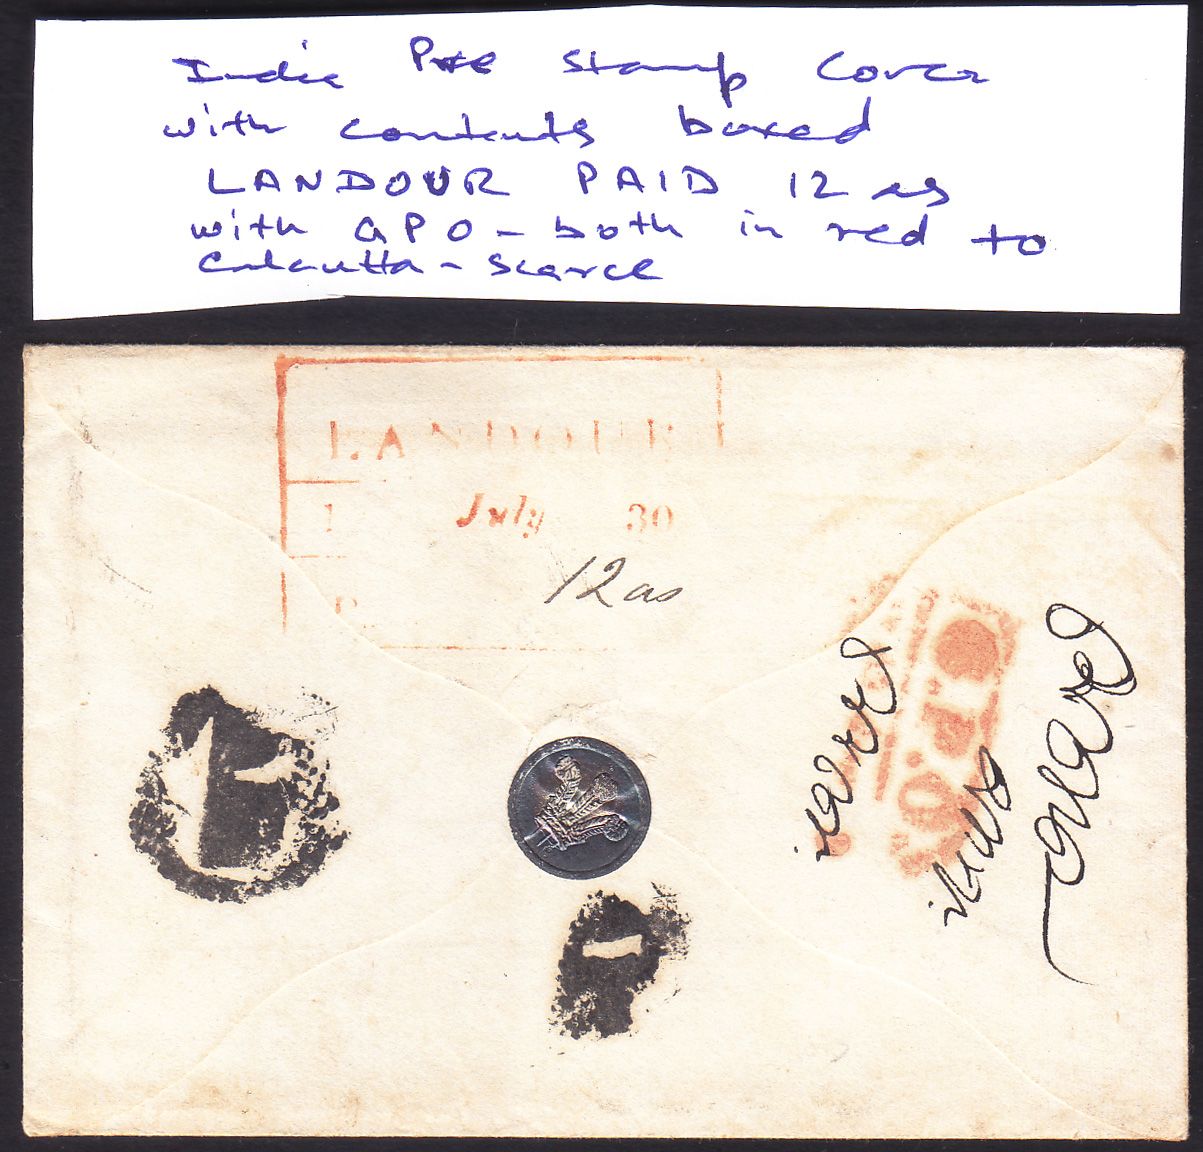 India Pre Stamp Cover
with contents boxed
LANDOUR PAID 12 as
with GPO - both in red to
Calcutta - Scarce
LANDOUR
1 July 30
P
12 as
G.P.O